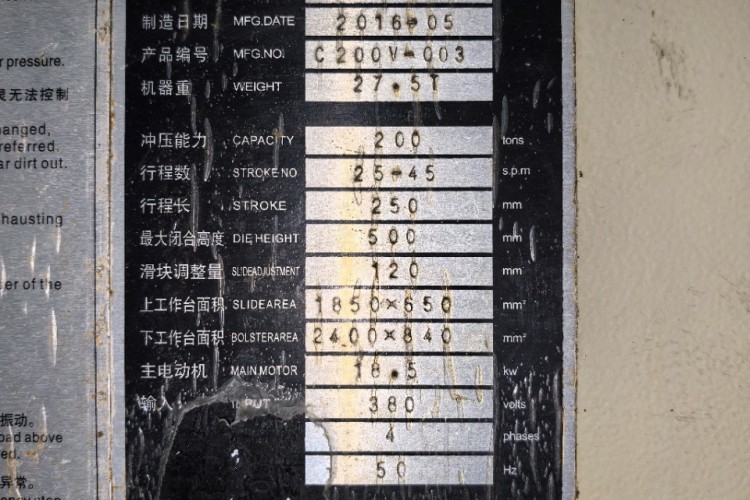 制造日期 MFG.DATE 2016-05
产品编号 MFG.NO. C200V-003
机器重 WEIGHT 27.5T
冲压能力 CAPACITY 200 tons
行程数 STROKE NO 25-45 s.p.m
行程长 STROKE 250 mm
最大闭合高度 DIE HEIGHT 500 mm
滑块调整量 SLIDEADJUSTMENT 120 mm
上工作台面积 SLIDEAREA 1850×650 mm²
下工作台面积 BOLSTERAREA 2400×840 mm²
主电动机 MAIN MOTOR 18.5 kw
输入 380 volts
4 phases
50 Hz
r pressure.
无法控制
anged,
referred.
ar dirt out.
hausting
er of the
振动。
oad above
ed.
异常。